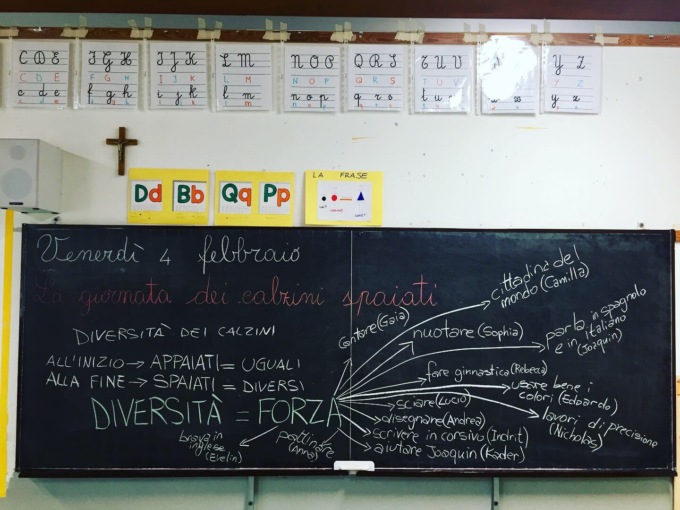 C D E
C D E
c d e
F G H
F G H
f g h
I J K
I J K
i j k
L M
L M
l m
N O P
N O P
n o p
Q R S
Q R S
q r s
T U V
T U V
t u v
Y Z
Y Z
y z
Dd Bb Qq Pp
LA FRASE
Venerdì 4 febbraio
La giornata dei calzini spaiati
DIVERSITÀ DEI CALZINI
ALL'INIZIO → APPAIATI = UGUALI
ALLA FINE → SPAIATI = DIVERSI
DIVERSITÀ = FORZA
cantare (Gaia)
cittadina del
mondo (Camilla)
nuotare (Sophia)
parla in spagnolo
e in italiano
(Joaquin)
fare ginnastica (Rebecca)
usare bene i
colori (Edoardo)
sciare (Lucio)
lavori di precisione
(Nicholas)
disegnare (Andrea)
scrivere in corsivo (Indrit)
aiutare Joaquin (Kader)
pattinare
(Anna)
brava in
inglese
(Evelin)